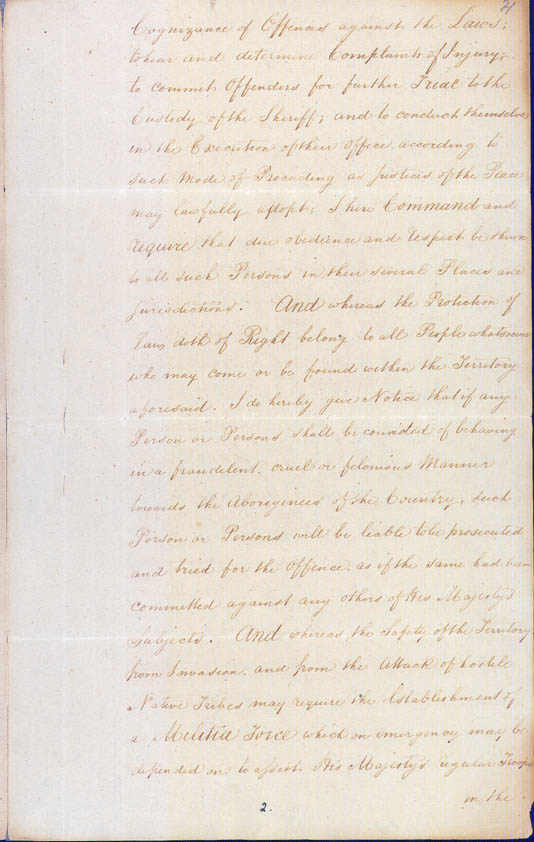 21
Cognizance of Offences against the Laws;
to hear and determine Complaints of Injury;
to commit Offenders for further Trial to the
Custody of the Sheriff; and to conduct themselves
in the Execution of their office according to
such Mode of Proceeding as Justices of the Peace
may lawfully adopt; I here Command and
require that due obedience and respect be shewn
to all such Persons in their several Places and
Jurisdictions. And whereas the Protection of
Law doth of Right belong to all People whatsoever
who may come or be found within the Territory
aforesaid. I do hereby give Notice that if any
Person or Persons shall be convicted of behaving
in a fraudelent, cruel or felonious Manner
towards the Aborigines of the Country, such
Person or Persons will be liable to be prosecuted
and tried for the Offence, as if the same had been
committed against any others of His Majesty's
Subjects. And whereas the Safety of the Territory
from Invasion, and from the Attack of hostile
Native Tribes may require the Establishment of
a Militia Force which on emergency may be
depended on to assist His Majesty's regular Troops
in the
2.